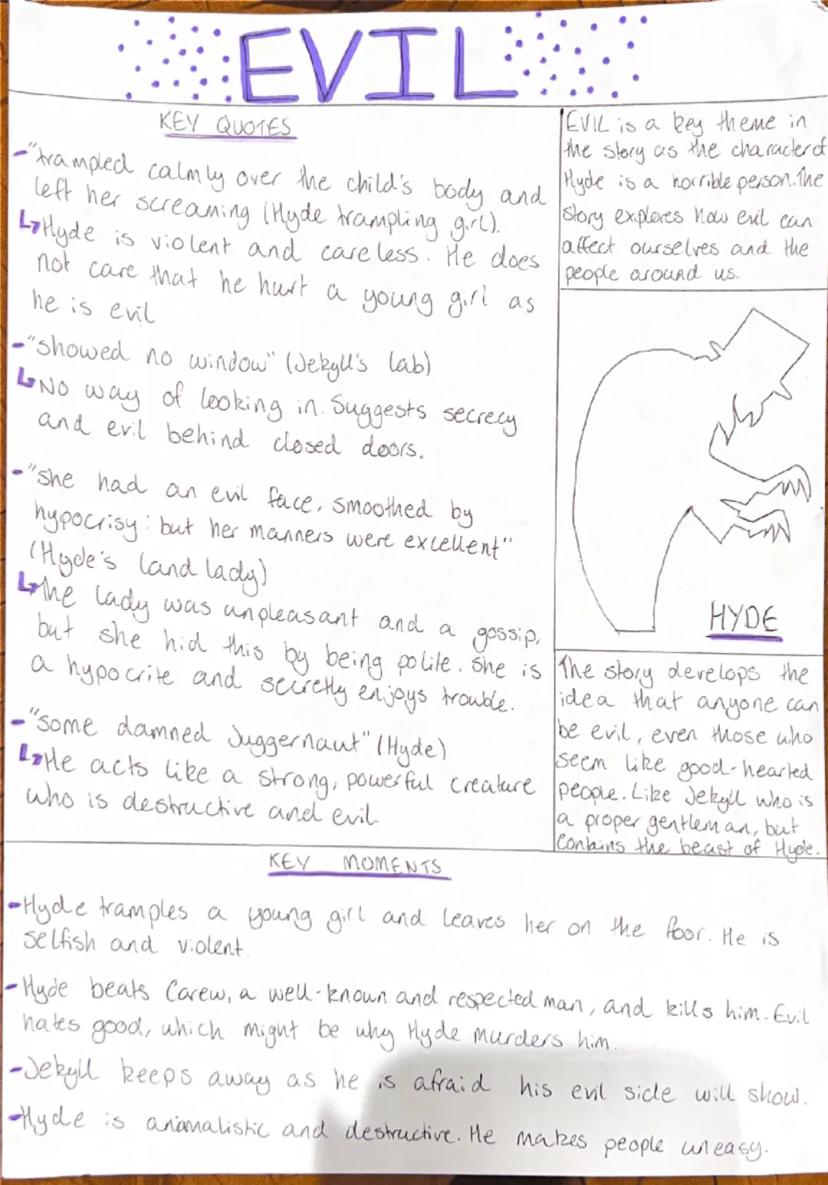 EVIL
KEY QUOTES
-"trampled calmly over the child's body and
left her screaming (Hyde trampling girl).
↳Hyde is violent and careless. He does
not care that he hurt a young girl as
he is evil
-"showed no window" (Jekyll's lab)
↳No way of looking in. Suggests secrecy
and evil behind closed doors.
-"she had an evil face, smoothed by
hypocrisy: but her manners were excellent"
(Hyde's land lady)
↳The lady was unpleasant and a gossip,
but she hid this by being polite. She is
a hypocrite and secretly enjoys trouble.
-"some damned Juggernaut" (Hyde)
↳He acts like a strong, powerful creature
who is destructive and evil
EVIL is a key theme in
the story as the character of
Hyde is a horrible person. The
story explores how evil can
affect ourselves and the
people around us.
HYDE
The story develops the
idea that anyone can
be evil, even those who
seem like good-hearted
people. Like Jekyll who is
a proper gentleman, but
contains the beast of Hyde.
KEY MOMENTS
-Hyde tramples a young girl and leaves her on the floor. He is
selfish and violent.
-Hyde beats Carew, a well-known and respected man, and kills him. Evil
hates good, which might be why Hyde murders him.
-Jekyll keeps away as he is afraid his evil side will show.
-Hyde is animalistic and destructive. He makes people uneasy.